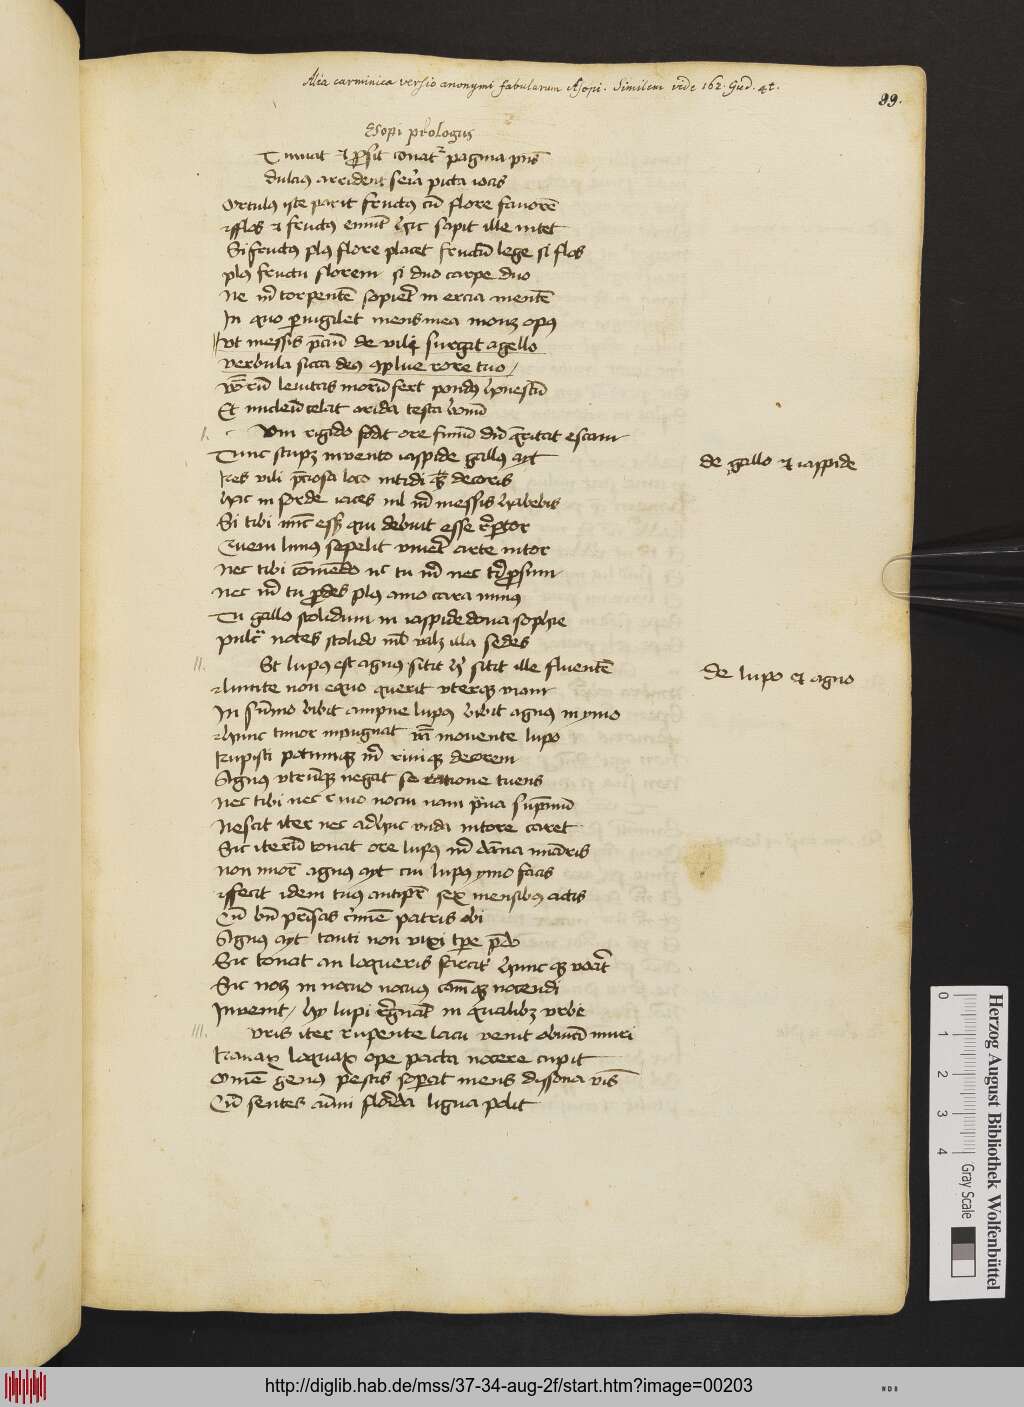 Alia carminica versio anonymi fabularum Æsopi. Similem vide 162. Gud. 4t.
99.
Esopi prologus
T iuuat et prosit conat pagina pñs
dulcius arrident seria picta iocis
Ortulus iste parit fructus cum flore fauorē
et flos et fructus emunt hic sapit ille nitet
Si fructus plus flore placet fructum lege si flos
plus fructu florem si duo carpe duo
Ne mihi torpentē sopiret in ercia mentē
In quo peruigilet mens mea mouit opus
Vt messis preciū de vili surgat agello
verbula sicca deus implue rore tuo
verborum leuitas morum fert pondus honestum
Et nucleum celat arida testa bonum
I. Vm rigido fodit ore fimum dum queritat escam
Tunc stupet inuento iaspide gallus ayt
de gallo et iaspide
Res vili preciosa loco nitidi que decoris
hac in sorde iaces nil mihi messis habebis
Si tibi nunc esset qui debuit esse repertor
Quem limus sepelit viueret arte nitor
Nec tibi conuenio nec tu mihi nec tibi prosum
nec mihi tu prodes plus amo cara minus
Tu gallo stolidum in iaspide dona sophie
pulcra notes stolido nil valet illa sedes
II. St lupus est agnus sitit hic sitit ille fluentē
de lupo et agno
limite non equo querit vterque viam
In summo bibit ampne lupus bibit agnus in ymo
hunc timor inpugnat verba mouente lupo
Rupisti potumque mihi riuique decorem
Agnus vtrumque negat se ratione tuens
Nec tibi nec riuo nocui nam prima supernum
Nescit iter nec adhuc vnda nitore caret
Sic iterum tonat ore lupus mihi dampna minaris
non minor agnus ayt cui lupus ymo facis
fecit idem tuus ante pater sex mensibus actis
Cum bene patrisas crimine patris obi
Agnus ayt tanti non vixi tempore predo
Sic tonat an loqueris furcifer huncque vorat
Sic nocet in nocuo nocuus causamque nocendi
Inuenit hii lupi regnant in qualibet vrbe
III. Vris iter rupente lacu venit obuia muri
Rana loquax ope pacta nocere cupit
Omne genus pestis superat mens dissona verbis
Cum sentes animi florida lingua polit
0 1 2 3 4
Herzog August Bibliothek Wolfenbüttel
Gray Scale
http://diglib.hab.de/mss/37-34-aug-2f/start.htm?image=00203